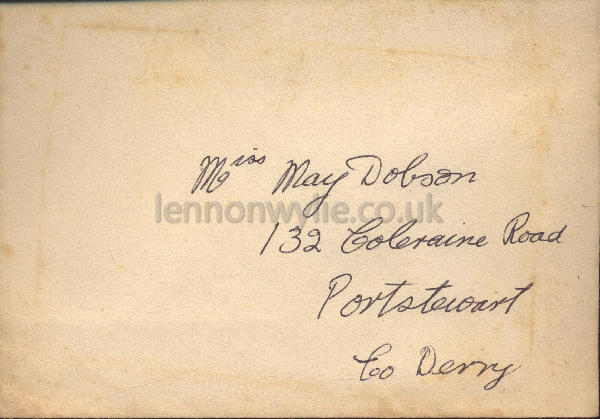 Miss May Dobson
lennonwylie.co.uk
132 Coleraine Road
Portstewart
Co Derry